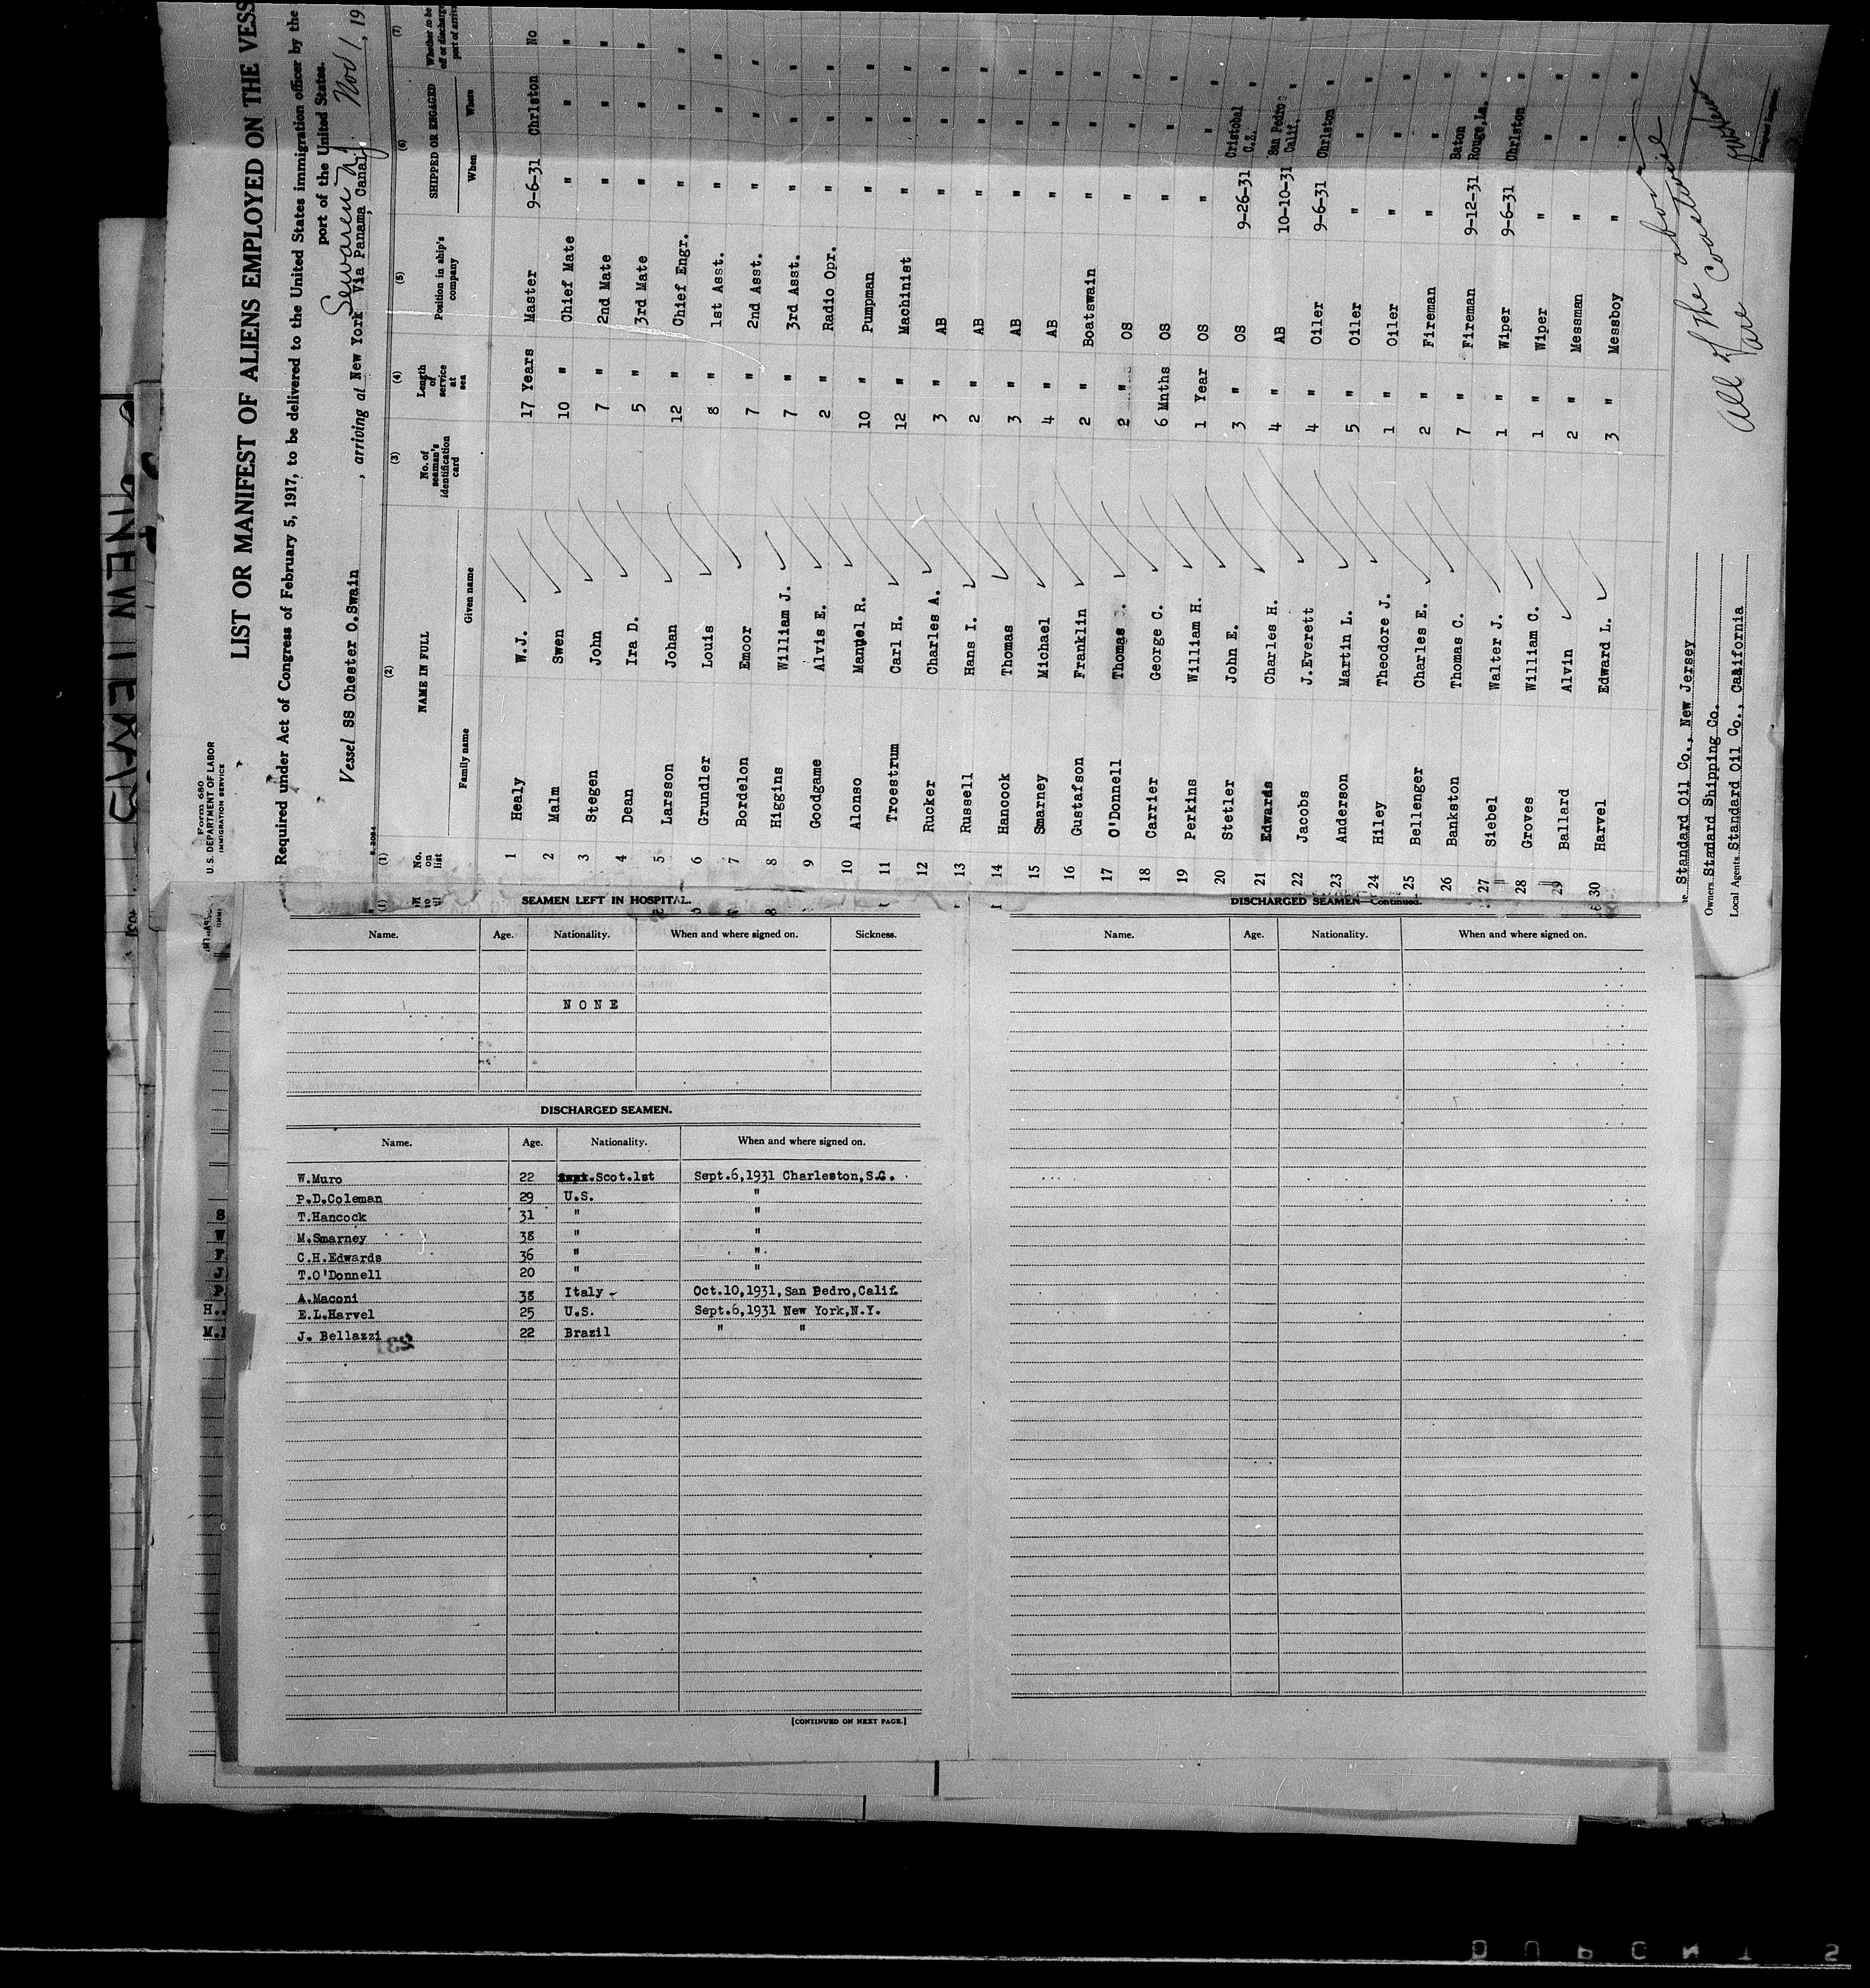 Form 680
U.S. DEPARTMENT OF LABOR
IMMIGRATION SERVICE
LIST OR MANIFEST OF ALIENS EMPLOYED ON THE VESS
Required under Act of Congress of February 5, 1917, to be delivered to the United States immigration officer by the
port of the United States.
Sewaren N.J.
Vessel SS Chester O.Swain , arriving at New York Via Panama Canal, Nov 1, 19
(1) (2) (3) (4) (5) (6) (7)
No. on list NAME IN FULL No. of seaman's identification card Length of service at sea Position in ship's company SHIPPED OR ENGAGED
Family name Given name When Where
1 Healy W.J. 17 Years Master 9-6-31 Chrlston No
2 Malm Swen 10 " Chief Mate " " "
3 Stegen John 7 " 2nd Mate " " "
4 Dean Ira D. 5 " 3rd Mate " " "
5 Larsson Johan 12 " Chief Engr. " " "
6 Grundler Louis 8 " 1st Asst. " " "
7 Bordelon Emoor 7 " 2nd Asst. " " "
8 Higgins William J. 7 " 3rd Asst. " " "
9 Goodgame Alvis E. 2 " Radio Opr. " " "
10 Alonso Manuel R. 10 " Pumpman " " "
11 Troestrum Carl H. 12 " Machinist " " "
12 Rucker Charles A. 3 " AB " " "
13 Russell Hans I. 2 " AB " " "
14 Hancock Thomas 3 " AB " " "
15 Smarney Michael 4 " AB " " "
16 Gustafson Franklin 2 " Boatswain " " "
17 O'Donnell Thomas 2 " OS " " "
18 Carrier George C. 6 Mnths OS " " "
19 Perkins William H. 1 Year OS " " "
20 Stetler John E. 3 " OS 9-26-31 Cristobal C.Z. "
21 Edwards Charles H. 4 " AB 10-10-31 San Pedro Calif. "
22 Jacobs J.Everett 4 " Oiler 9-6-31 Chrlston "
23 Anderson Martin L. 5 " Oiler " " "
24 Hiley Theodore J. 1 " Oiler " " "
25 Bellenger Charles E. 2 " Fireman " " "
26 Bankston Thomas C. 7 " Fireman 9-12-31 Baton Rouge,La. "
27 Siebel Walter J. 1 " Wiper 9-6-31 Chrlston "
28 Groves William C. 1 " Wiper " " "
29 Ballard Alvin 2 " Messman " " "
30 Harvel Edward L. 3 " Messboy " " "
All of the above
are Coastwise
Standard Oil Co., New Jersey
Owners Standard Shipping Co.
Local Agents Standard Oil Co., California
SEAMEN LEFT IN HOSPITAL.
Name. Age. Nationality. When and where signed on. Sickness.
NONE
DISCHARGED SEAMEN.
Name. Age. Nationality. When and where signed on.
W.Muro 22 Scot.1st Sept.6,1931 Charleston,S.C.
P.D.Coleman 29 U.S. "
T.Hancock 31 " "
M.Smarney 38 " "
C.H.Edwards 36 " "
T.O'Donnell 20 " "
A.Maconi 38 Italy Oct.10,1931,San Pedro,Calif.
E.L.Harvel 25 U.S. Sept.6,1931 New York,N.Y.
J. Bellazzi 22 Brazil " "
[CONTINUED ON NEXT PAGE.]
DISCHARGED SEAMEN—Continued.
Name. Age. Nationality. When and where signed on.
DUPONT S